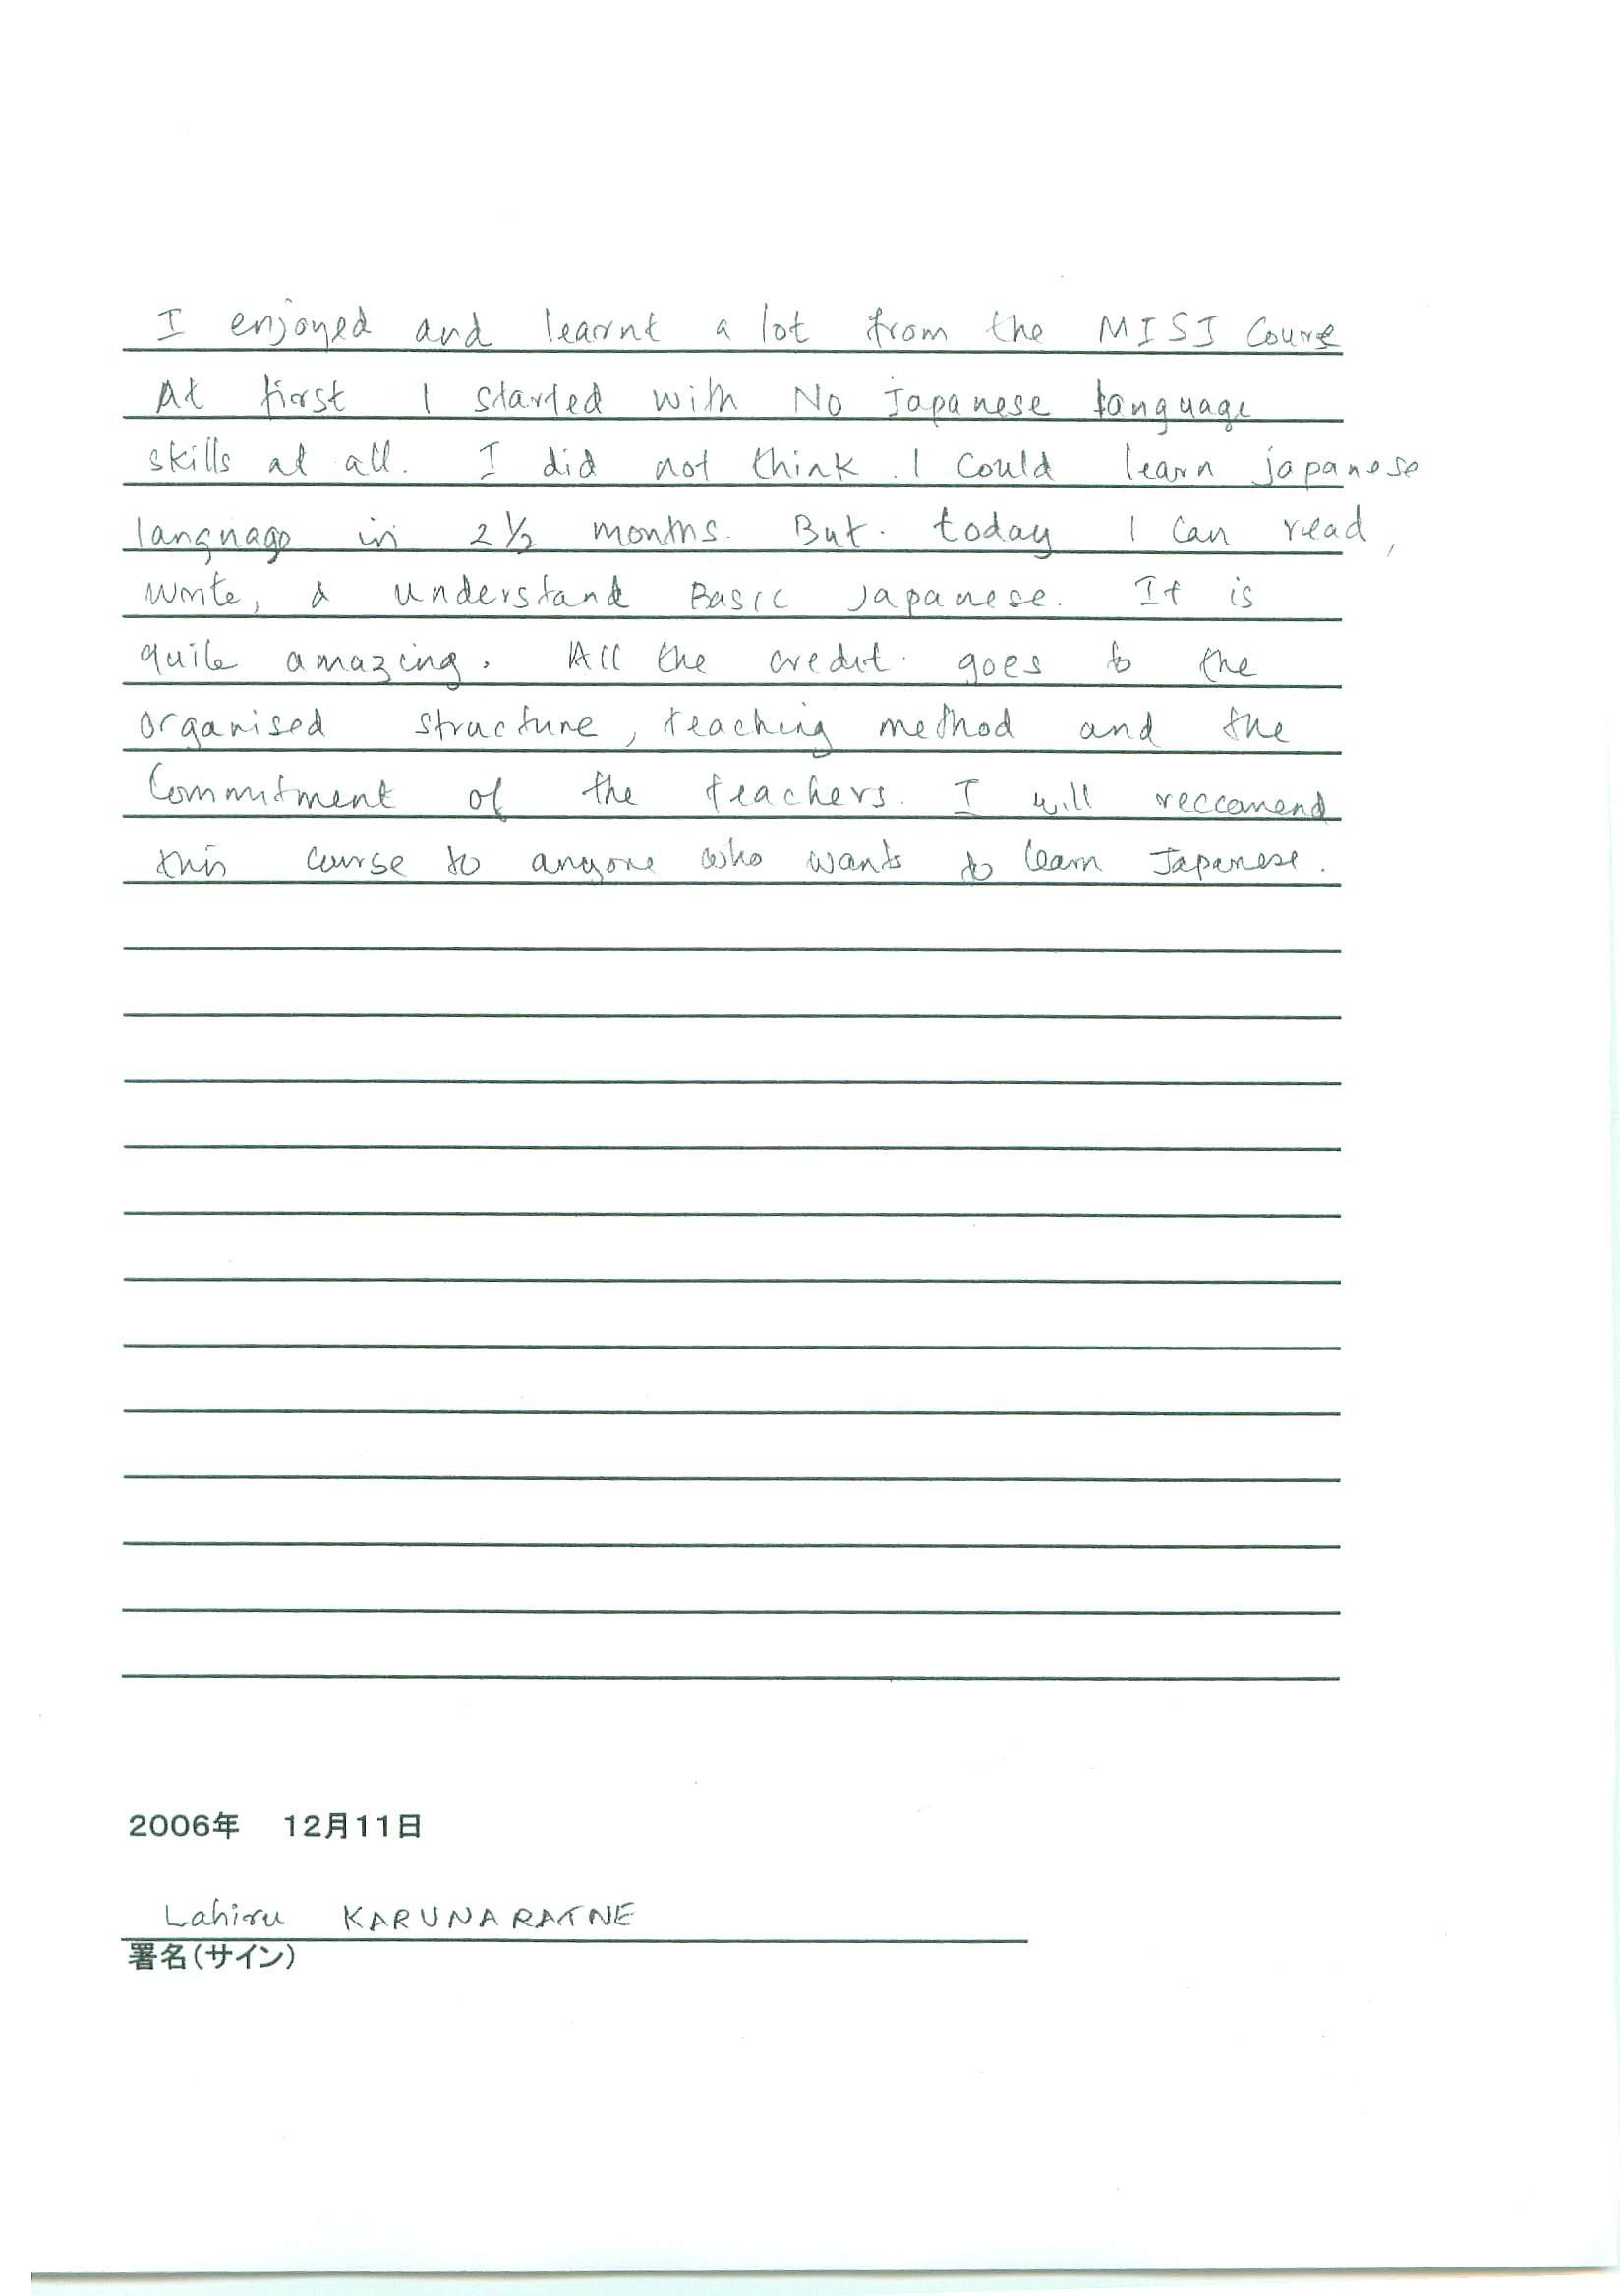 I enjoyed and learnt a lot from the MISJ Course
At first I started with No Japanese language
skills at all. I did not think I could learn japanese
language in 2 1/2 months. But today I can read,
write, & understand Basic Japanese. It is
quite amazing. All the credit goes to the
organised structure, teaching method and the
Commitment of the teachers. I will reccomend
this course to anyone who wants to learn Japanese.
2006年 12月11日
Lahiru KARUNARATNE
署名(サイン)